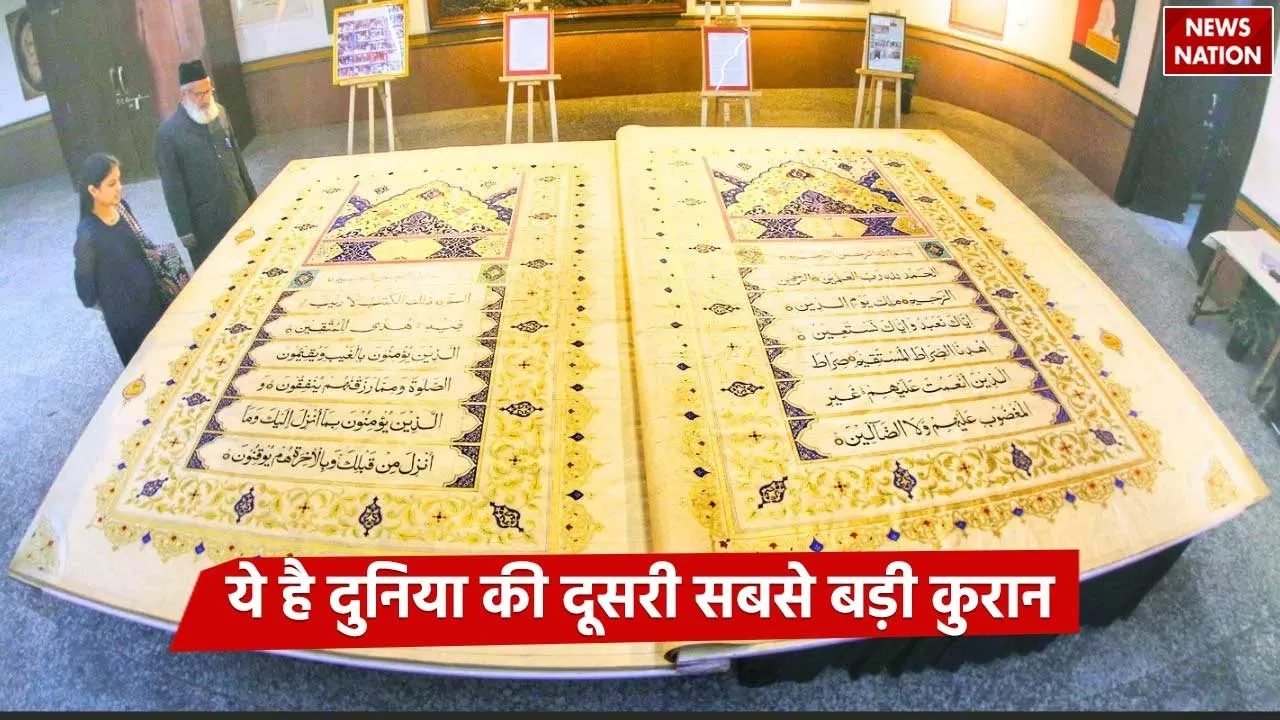 NEWS
NATION
الحمد لله رب العلمين ۝ الرحمن
الرحيم ۝ ملك يوم الدين ۝
اياك نعبد و اياك نستعين ۝
اهدنا الصراط المستقيم ۝ صراط
الذين انعمت عليهم ۙ غير
المغضوب عليهم ولا الضالين ۝
الم ۝ ذلك الكتب لا ريب
فيه ۛ هدى للمتقين ۝
الذين يؤمنون بالغيب ويقيمون
الصلوة ومما رزقنهم ينفقون ۝ و
الذين يؤمنون بما انزل اليك وما
انزل من قبلك وبالاخرة هم يوقنون ۝
ये है दुनिया की दूसरी सबसे बड़ी कुरान